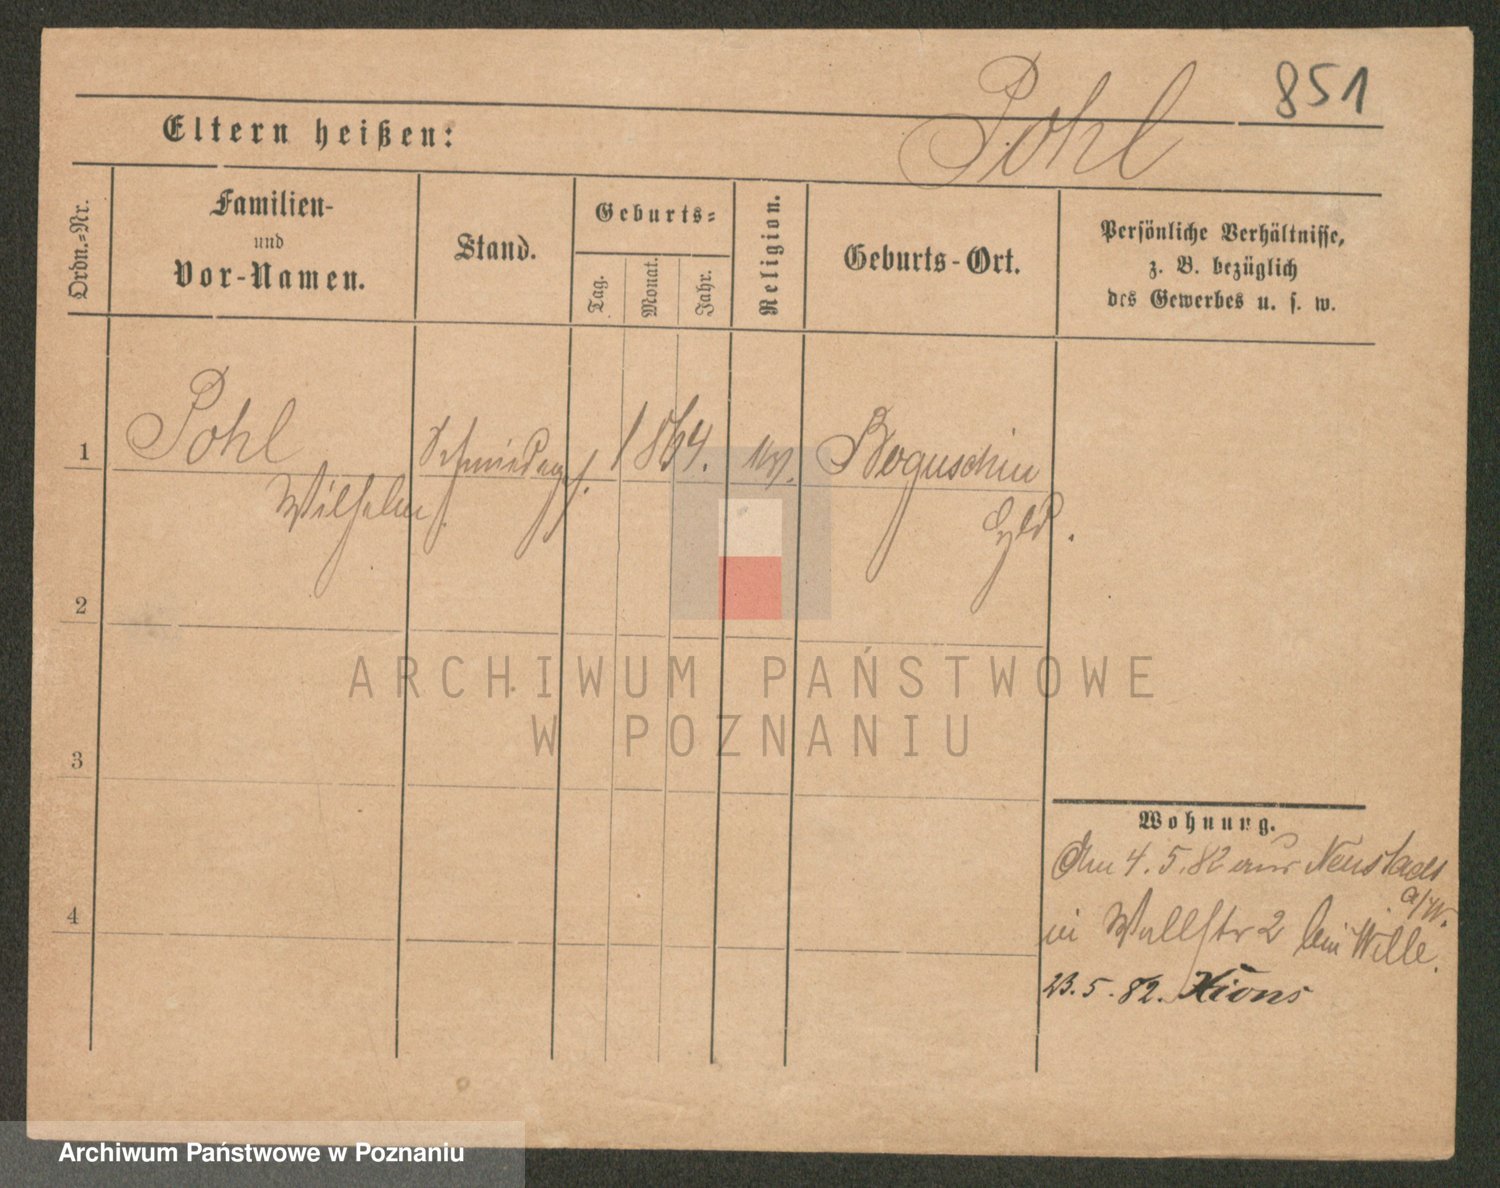 851
Pohl
Eltern heißen:
Ordn.=Nr.
Familien-
und
Vor-Namen.
Stand.
Geburts=
Tag.
Monat.
Jahr.
Religion.
Geburts-Ort.
Persönliche Verhältnisse,
z. B. bezüglich
des Gewerbes u. s. w.
1
Pohl
Wilhelm.
Schmiedeges.
1864.
ev.
Boguschin
2
3
4
ARCHIWUM PAŃSTWOWE
W POZNANIU
Wohnung.
Am 4.5.82 aus Neustadt
a/W.
in Wallstr 2 bei Wille.
23.5.82. Xions
Archiwum Państwowe w Poznaniu